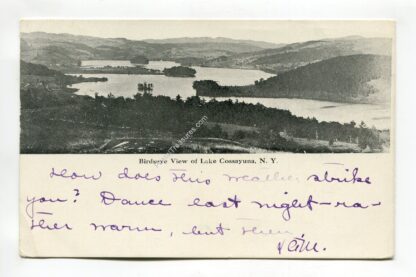 Birdseye View of Lake Cossayuna, N. Y.
How does this weather strike
you? Dance last night - ra-
ther warm, but then